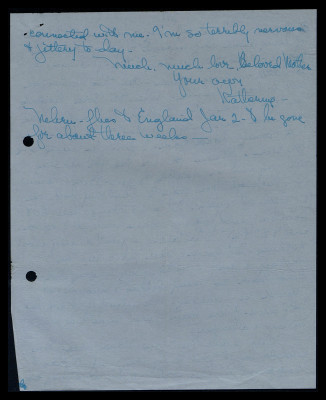 connected with me. I'm so terribly nervous
& jittery to-day -
Much, much love Beloved Mother
Your own
Katharine -
Nehru flies to England Jan 2 - & be gone
for about three weeks -